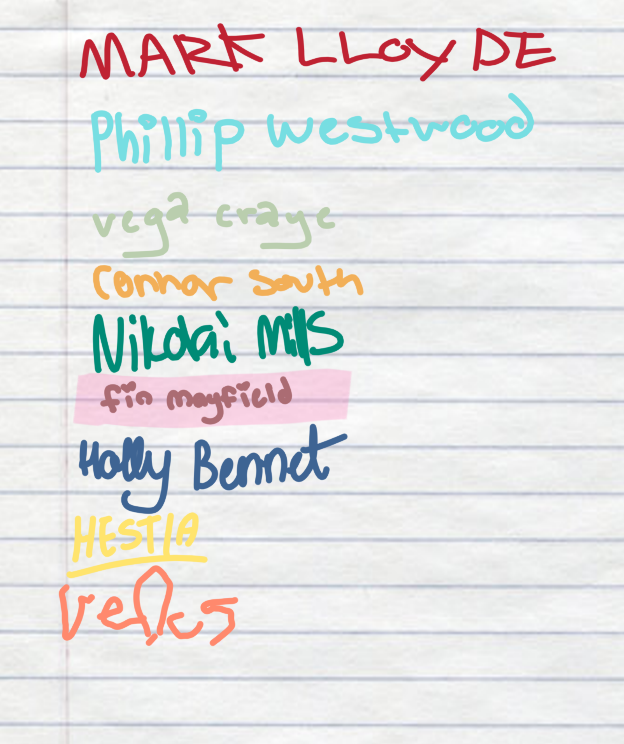 MARK LLOYDE
Phillip Westwood
vega craye
Connor South
Nikolai Mills
fin mayfield
Holly Bennet
HESTIA